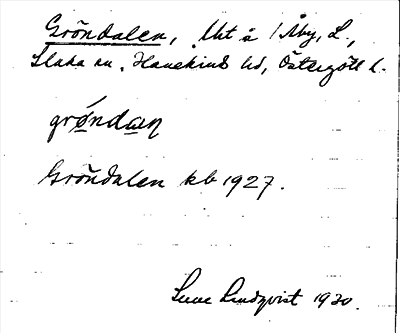 Gröndalen, lht å 1 Åby, L.,
Slaka sn. Hanekinds hd, Östergötl l.
grǿndaꞑ
Gröndalen kb 1927.
Sune Lindqvist 1930.